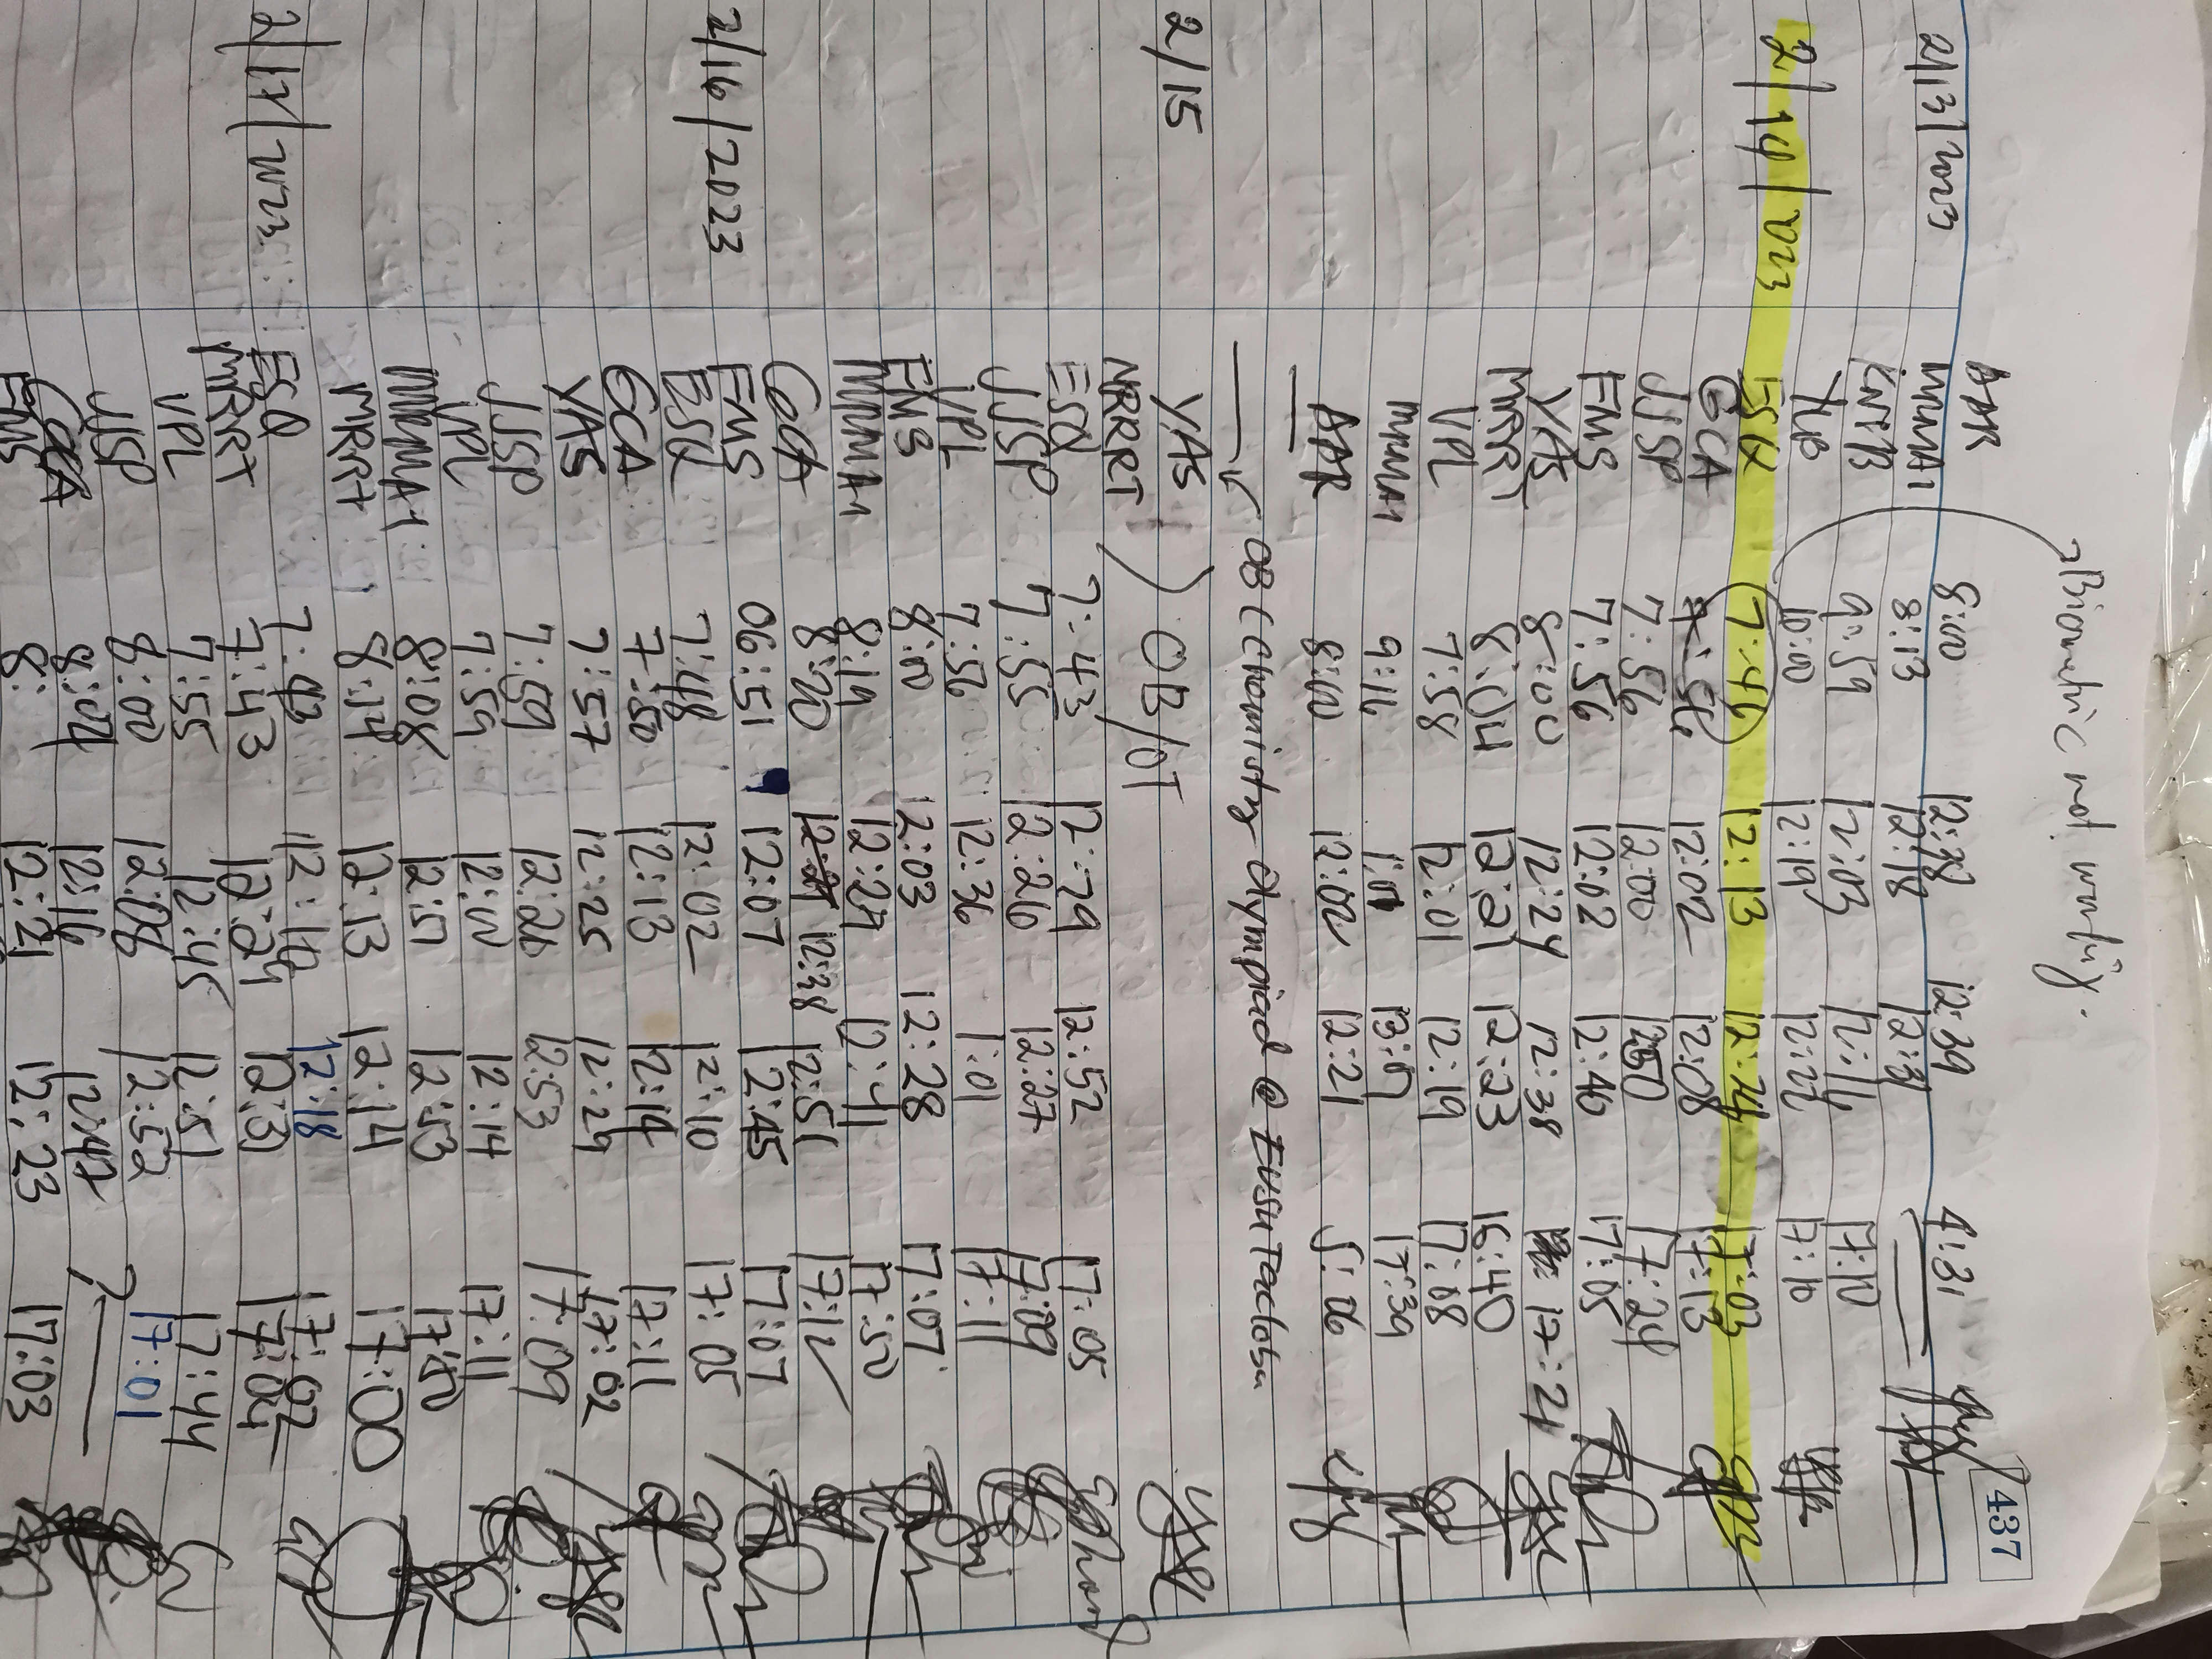 437
Biometric not working.
AAR 8:00 12:38 12:39 4:31
2/13/2023 MMMA1 8:13 12:18 12:31
KNFB 9:59 12:03 12:16 17:10
10:10 12:19 12:22 17:10
2/14/2023 ESQ 7:46 12:13 12:24 17:03
GCA 12:02 12:08 17:13
JJSP 7:56 12:00 1250 17:24
FMS 7:56 12:02 12:46 17:05
YAS 8:00 12:24 12:38 17:21
MRRT 8:04 12:21 12:23 16:40
VPL 7:58 12:01 12:19 17:08
MMMA1 9:16 1:01 13:01 17:39
AAR 8:00 12:02 12:21 5:06
OB (Chemistry Olympiad @ EVSU Tacloban
2/15 YAS
MRRT ) OB/OT
ESQ 7:43 12:29 12:52 17:05
JJSP 7:55 12:26 12:27 17:09
VPL 7:56 12:36 1:01 17:11
FMS 8:00 12:03 12:28 17:07
MMMA1 8:19 12:27 12:41 17:50
GCA 8:20 12:38 12:51 17:12
2/16/2023 FMS 06:51 12:07 12:45 17:07
ESQ 7:48 12:02 12:10 17:05
GCA 7:50 12:13 12:14 17:11
YAS 7:57 12:25 12:29 17:02
JJSP 7:59 12:26 12:53 17:09
VPL 7:59 12:10 12:14 17:11
MMMA1 8:08 12:51 12:53 17:50
MRRT 8:14 12:13 12:14 17:00
2/17/2023 ESQ 7:43 12:14 12:18 17:02
MRRT 7:43 12:29 12:31 17:04
VPL 7:55 12:45 12:51 17:44
JJSP 8:00 12:08 12:52 17:01
GCA 8:04 12:16 12:47 ?
FMS 8: 12:21 12:23 17:03